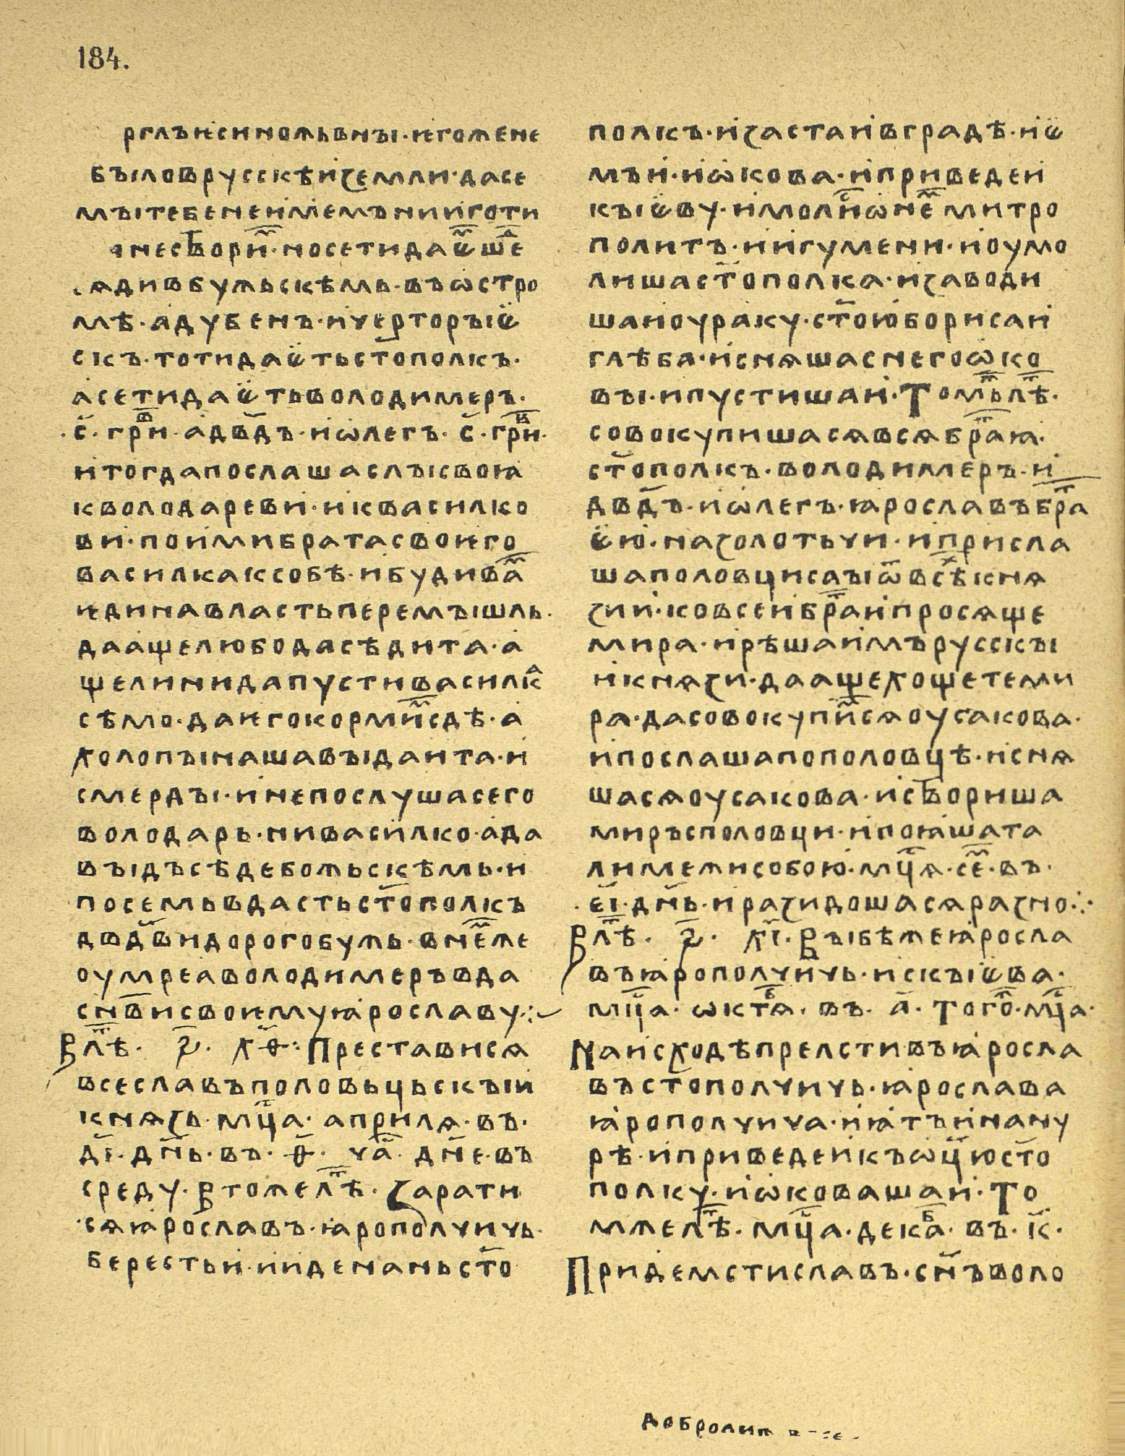 184.
рглъ и си ножь в ны · ѥгоже не
было в русскѣи земли · да се
мы тебе не имемъ ни иготи
а не створи · но се ти даѥ ше
ѧ ди в бужьскѣмь · въ ѡстро
мѣ · а дубенъ · и черторыѥ
скъ · то ти даѥть ст҃ополкъ ·
а се ти даѥть володимеръ ·
· с҃ · грⷡ҇и · а дв҃дъ · и ѡлегъ · с҃ · грⷡ҇и ·
и тогда послаша слы своꙗ
к володареви · и к василко
ви · поими брата своѥго
василка к собѣ · и буди ва
ѥдина власть перемышль ·
да аще любо да сѣдита · а
ще ли ни да пусти василкⷶ
сѣмо · да ѥго кормиⷨ сдѣ · а
холопы наша выдаита · и
смерды · и не послуша сего
володарь · ни василко · а д҃а
выдъ сѣде божьскѣмь · и
посемь вдасть ст҃ополкъ
дв҃дви дорогобужь · в неⷨже
оумре а володимеръ вда
сн҃ви своѥму ꙗрославу ·:·
В лѣⷮ · ҂ꙅ҃ · х҃ · ѳ҃ · Престависѧ
всеславъ половьцьскыи
кнѧзь · мцⷭ҇а · априлѧ · въ ·
д҃і · дн҃ь · въ · ѳ҃ · чаⷭ · дн҃е · въ
среду · В тоже лѣⷮ · Зарати
сѧ ꙗрославъ · ꙗрополчичь ·
берестьи · и иде на нь ст҃о
полкъ · и заста и в градѣ · и ѥ
мъ и · и ѡкова · и приведе и
кыѥву · и молиⷭ ѡ неⷨ митро
политъ · и игумени · и оумо
лиша ст҃ополка · и заводи
ша и оу раку · ст҃ою бориса и
глѣба · и снѧша с него ѡко
вы · и пустиша и · Томь лѣⷮ ·
совокупишасѧ всѧ братꙗ ·
ст҃ополкъ · володимеръ · и
дв҃дъ · и ѡлегъ · ꙗрославъ братⷮ
ѥю · на золотьчи · и присла
ша половци слы ѿ всѣⷯ кнѧ
зии · ко всеи братⷮи просѧще
мира · и рѣша имъ русскы
и кнѧзи · да аще хощете ми
ра · да совокупиⷨсѧ оу сакова ·
и послаша по половцѣ · и снѧ
шасѧ оу сакова · и створиша
миръ с половци · и поꙗша та
ли межи собою · мцⷭ҇ѧ · сеⷨ · въ ·
· е҃і · дн҃ь · и разидошасѧ разно ·:·
В лѣⷮ · ҂ꙅ҃ · х҃ · і҃ · Выбѣже ꙗросла
въ ꙗрополчичь · ис кыѥва ·
мцⷭ҇а · ѡктⷨѧ · въ · а҃ · Тогоⷤ · мцⷭ҇а ·
На исходѣ прелстивъ ꙗросла
въ ст҃ополчичь · ꙗрослава
ꙗрополчича · и ꙗтъ и на ну
рѣ · и приведе и къ ѡц҃ю ст҃о
полку · и ѡковаша и · То
мже лѣⷮ · мцⷭ҇а · декаⷠ · въ · к҃ ·
Приде мстиславъ · сн҃ъ воло